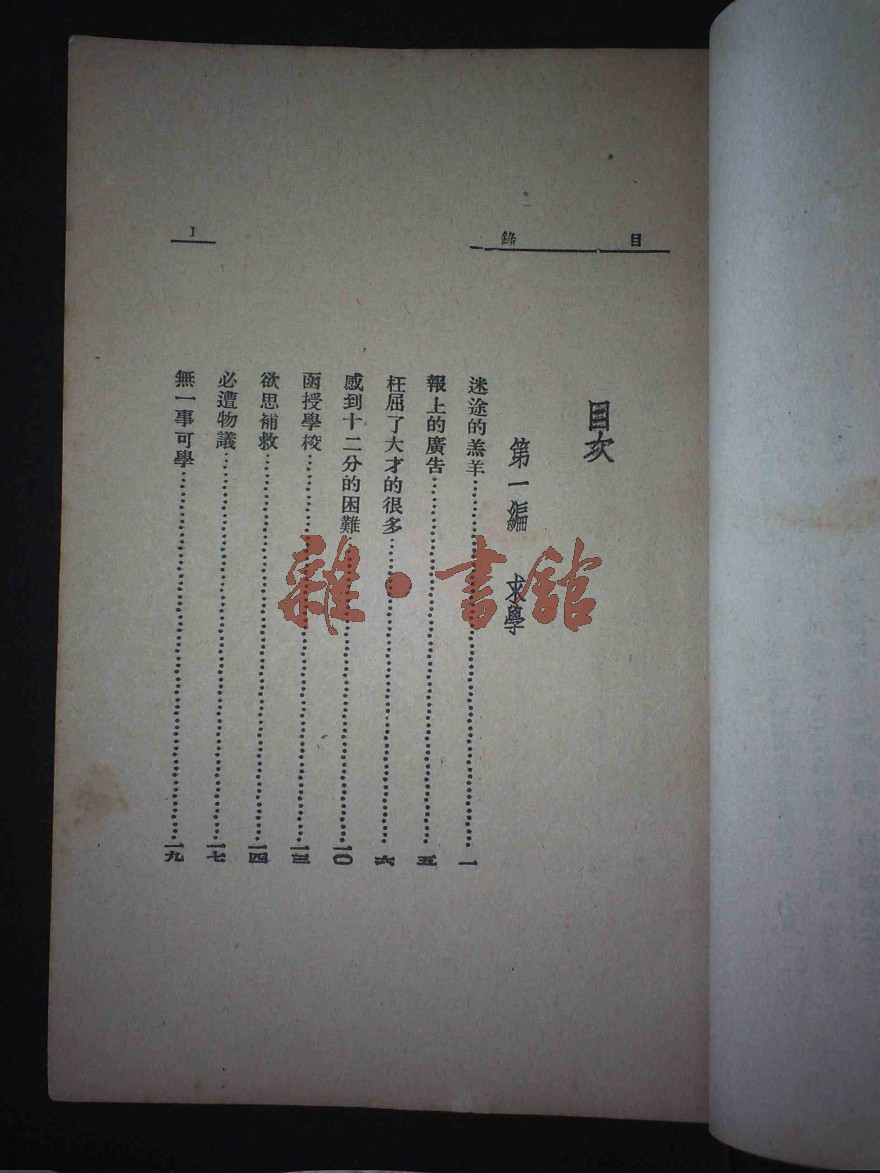 目錄
1
目次
第一編 求學
迷途的羔羊……一
報上的廣告……五
枉屈了大才的很多……六
感到十二分的困難……一〇
函授學校……一三
欲思補救……一四
必遭物議……一七
無一事可學……一九
雜·書館